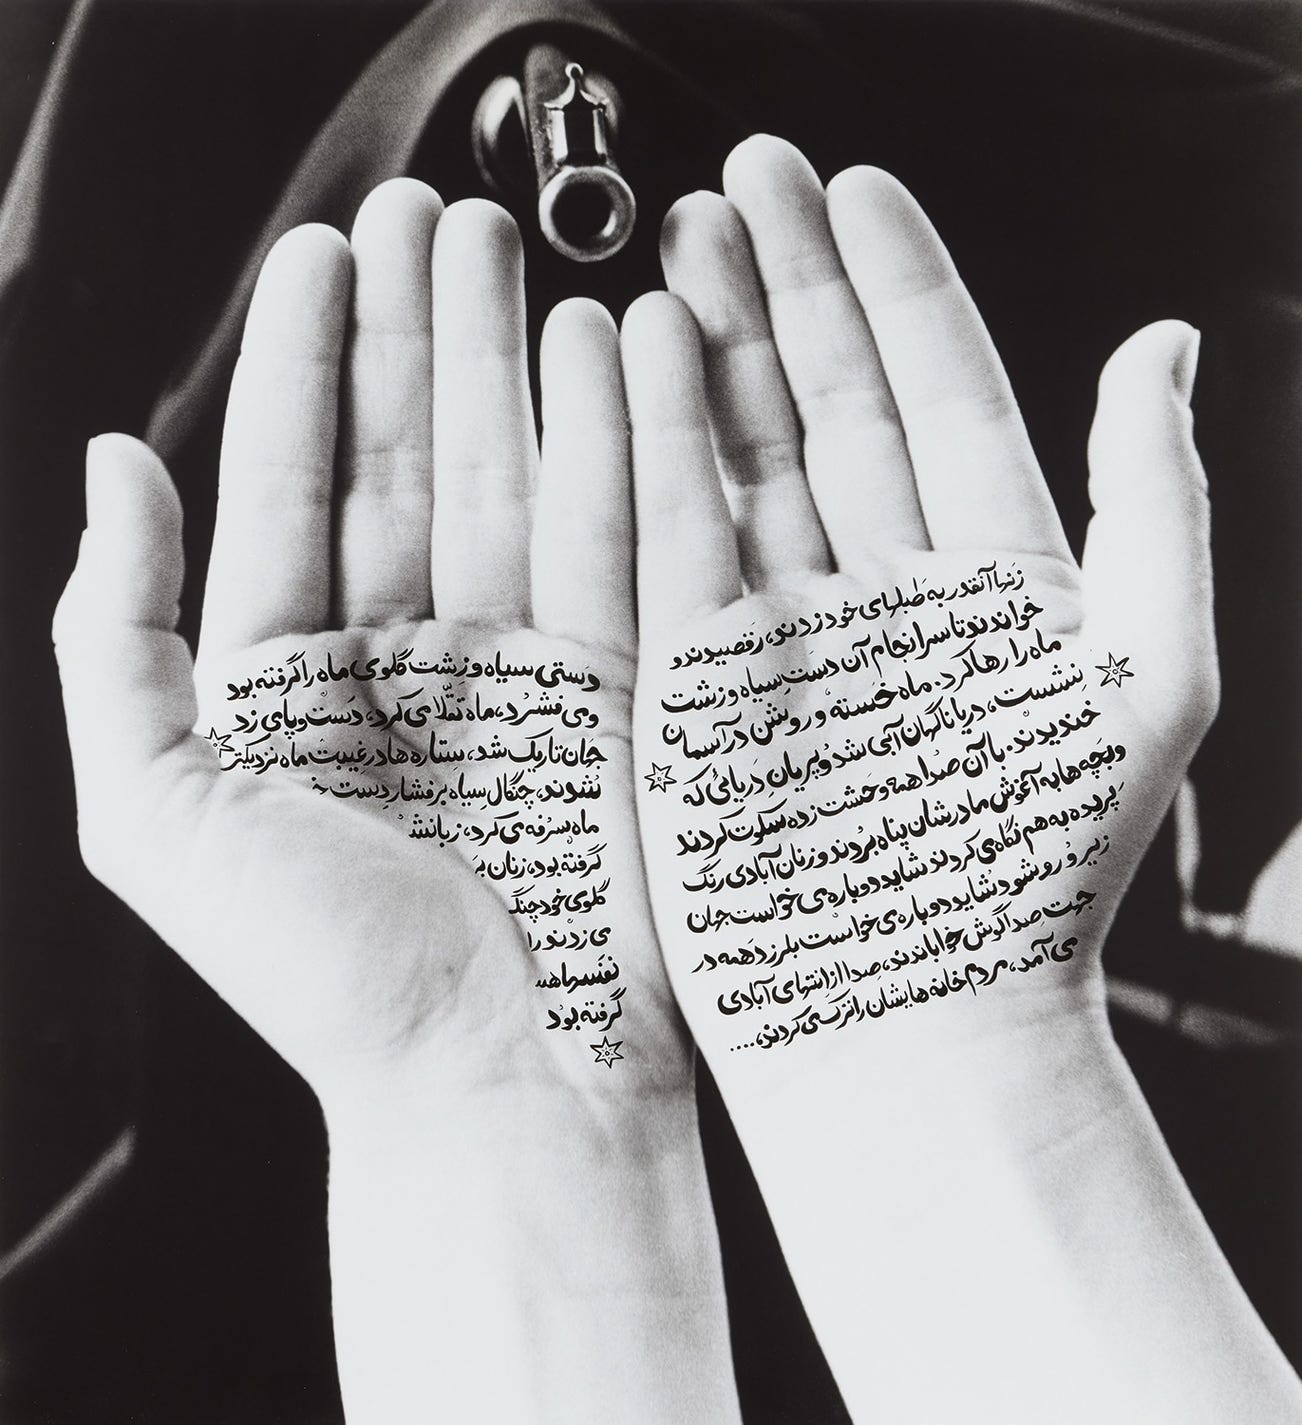 دستی سیاه و زشت گلوی ماه را گرفته بود
و می فشرد، ماه تقلّا می کرد، دست و پای زد
جهان تاریک شد، ستاره ها در غیبت ماه نزدیکتر
شدند، چنگال سیاه بر فشار دست
ماه سرفه می کرد، زبانش
گرفته بود، زنان
گلوی خود چنگ
می زدند
نفسها
گرفته بود
زنها آنقدر به طبلهای خود زدند، رقصیدند و
خواندند تا سرانجام آن دست سیاه و زشت
ماه را رها کرد. ماه خسته و روشن در آسمان
نشست، دریا ناگهان آبی شد و پریان دریائی که
خندیدند. با آن صدا همه وحشت زده سکوت کردند
و بچه ها به آغوش مادرشان پناه بردند و زنان آبادی رنگ
پریده به هم نگاه می کردند شاید دوباره می خواست جهان
زیر و رو شود شاید دوباره می خواست بلرزد همه در
جهت صدا گوش خواباندند، صدا از انتهای آبادی
می آمد، مردم خانه هایشان را ترک می کردند،....